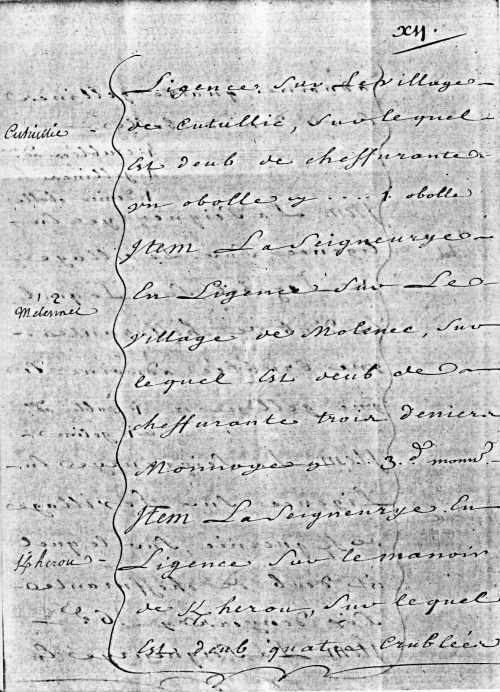 XII.
Ligence sur le village
Cutuillic
de Cutuillic, sur lequel
Est deub de cheffurante
vn obolle cy .... 1 obolle
Item La Seigneurye
En Ligence sur Le
1 2
village de Molenec, sur
lequel Est deub de
cheffurante trois deniers
Monnoye cy 3. d.rs monn.e
Item La Seigneurye En
Kherou
Ligence sur le manoir
de Kherou, sur lequel
Est deub quatre Crublées